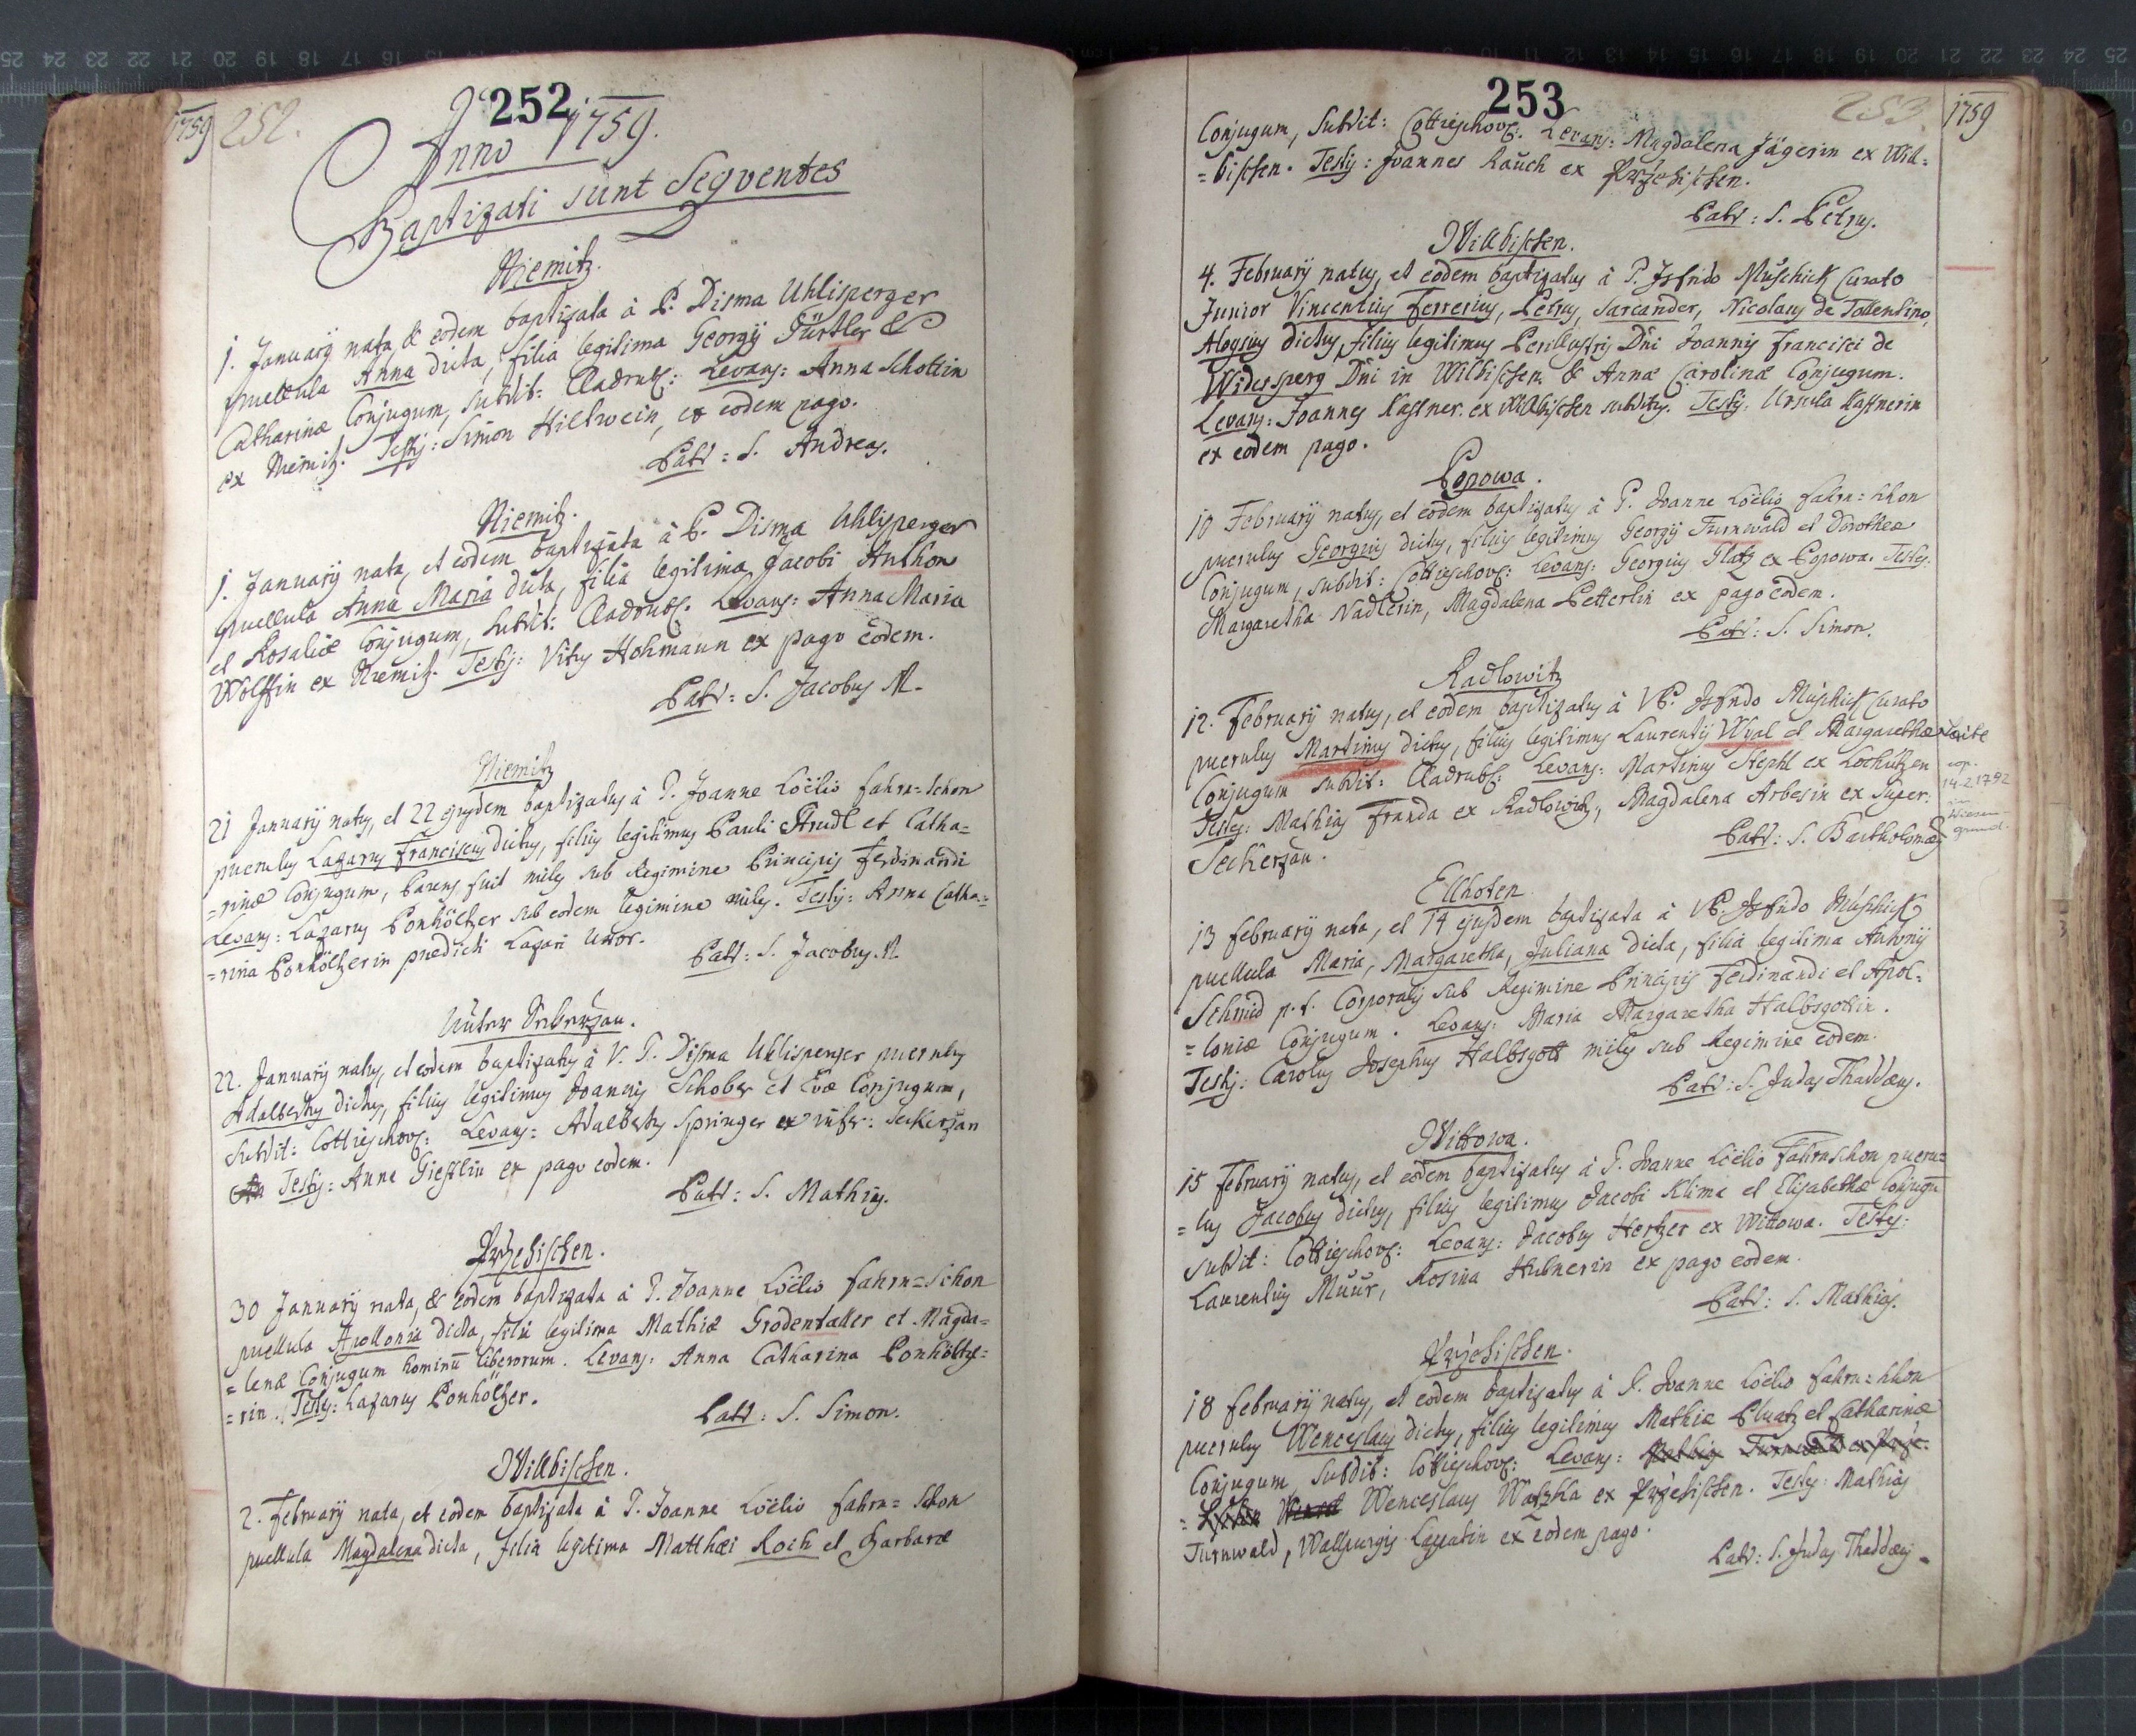 1759
252.
252
Anno 1759.
Baptizati sunt Seqventes
Niemitz.
1. Januarÿ nata, & eodem baptizata à P. Disma Uhlisperger
puellula Anna dicta, filia legitima Georgÿ Gürtler &
Catharinæ Conjugum, subdit: Cladrub: Levans: Anna Schottin
ex Niemitz. Testis: Simon Hiltwein, ex eodem pago.
Patr: S. Andreas.
Niemitz.
1. Januarÿ nata, et eodem baptizata à P. Disma Uhlisperger
puellula Anna Maria dicta, filia legitima Jacobi Anthon
et Rosaliæ Conjugum, subdit: Cladrub. Levans: Anna Maria
Wolffin ex Niemitz. Testis: Vitus Hohmann ex pago eodem.
Patr: S. Jacobus M.
Niemitz
21 Januarÿ natus, et 22 ejusdem baptizatus à P. Joanne Loëlio Fahrn=Schon
puerulus Lazarus Franciscus dictus, filius legitimus Pauli Strudl et Catha=
=rinæ Conjugum, Parens fuit miles sub Regimine Principis Ferdinandi
Levans: Lazarus Ponhöltzer sub eodem legimine miles. Testis: Anna Catha=
=rina Ponhöltzerin prædicti Lazari Uxor.
Patr: S. Jacobus. M.
Unter Sekerzau.
22. Januarÿ natus, et eodem baptizatus à V. P. Disma Uhlisperger puerulus
Adalbertus dictus, filius legitimus Joannis Schober et Evæ Conjugum,
Subdit: Cottieschov: Levans: Adalbertus Springer ex infer: Seckerzau
Testis: Anne Giesslin ex pago eodem.
Patr: S. Mathias.
Przehischen.
30 Januarÿ nata, & eodem baptizata à P. Joanne Loëlio Fahrn=Schon
puellula Apollonia dicta, filia legitima Mathiæ Grodentaller et Magda=
=lenæ Conjugum hominū liberorum. Levans: Anna Catharina Ponhöltze=
=rin. Testis: Lazarus Ponhöltzer.
Patr: S. Simon.
Willbischen.
2. Februarÿ nata, et eodem baptizata à P. Joanne Loëlio Fahrn=Schon
puellula Magdalena dicta, filia legitima Matthæi Koch et Barbaræ
253
253.
1759
Conjugum, Subdit: Cottieschov: Levans: Magdalena Jägerin ex Will=
=bischen. Testis: Joannes Rauch ex Przehischen.
Patr: S. Petrus.
Willbischen.
4. Februarÿ natus, et eodem baptizatus à P. Isfrido Muschick Curato
Junior Vincentius Ferrerius, Petrus, Sarcander, Nicolaus de Tollentino,
Aloysius dictus, filius legitimus Perillustris Dni Joannis Francisci de
Widersperg Dni in Wilbischen & Annæ Carolinæ Conjugum.
Levans: Joannes Kastner ex Willbischen subditus. Testis: Ursula Kastnerin
ex eodem pago.
Popowa.
10 Februarÿ natus, et eodem baptizatus à P. Joanne Loëlio Fahrn=schon
puerulus Georgius dictus, filius legitimus Georgÿ Turnwald et Dorotheæ
Conjugum, subdit: Cottieschov: Levans: Georgius Glatz ex Popowa. Testes.
Margaretha Nadlerin, Magdalena Petterlin ex pago eodem.
Patr: S. Simon.
Radlowitz
12. Februarÿ natus, et eodem baptizatus à VP. Isfrido Muschick Curato
puerulus Martinus dictus, filius legitimus Laurentÿ Wyal et Margarethæ
Conjugum subdit: Cladrub: Levans: Martinus Stephl ex Lochutzen
Testes: Mathias Franda ex Radlowitz, Magdalena Arbesin ex Super:
Seckerzau.
Patr: S. Bartholomæus
cop.
14.2.1792
in
Wiesen
grund.
Ellhoten
13 Februarÿ nata, et 14 ejusdem baptizata à VP. Isfrido Muschick
puellula Maria, Margaretha, Juliana dicta, filia legitima Antonÿ
Schmid p.t. Corporalis sub Regimine Principis Ferdinandi et Apol=
=loniæ Conjugum. Levans: Maria Margaretha Halbsgottin.
Testis: Carolus Josephus Halbsgott miles sub Regimine eodem.
Patr: S. Judas Thaddæus.
Wittowa.
15 Februarÿ natus, et eodem baptizatus à P. Joanne Loëlio Fahrnschon pueru=
=lus Jacobus dictus, filius legitimus Jacobi Klima et Elisabethæ Conjugū
subdit: Cottieschov: Levans: Jacobus Hertzer ex Wittowa. Testes:
Laurentius Muur, Rosina Hubnerin ex pago eodem.
Patr: S. Mathias.
Przehischen.
18 Februarÿ natus, et eodem baptizatus à P. Joanne Loëlio Fahrn=schon
puerulus Wenceslaus dictus, filius legitimus Mathiæ Pluatz et Catharinæ
Conjugum subdit: Cottieschov: Levans: Mathias Turnwald ex Prze=
Wenceslaus Watzka ex Przehischen. Testes: Mathias
Turnwald, Wallpurgis Lappatin ex eodem pago.
Patr: S. Judas Thaddæus.